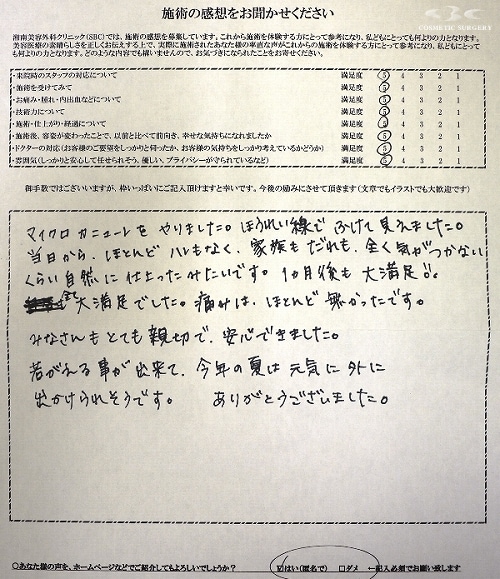 施術の感想をお聞かせください
COSMETIC SURGERY
湘南美容外科クリニック(SBC)では、施術の感想を募集しています。これから施術を体験する方にとって参考になり、私どもにとても何よりの力となります。
美容医療の素晴らしさを正しくお伝えする上で、実際に施術されたあなた様の率直な声がこれからの施術を体験する方にとって参考になり、私どもにとても何よりの力となります。どのような内容でも構いませんので、お気づきになられたことをお寄せください。
・来院時のスタッフの対応について 満足度 5 4 3 2 1
・施術を受けてみて 満足度 5 4 3 2 1
・お痛み・腫れ・内出血などについて 満足度 5 4 3 2 1
・技術力について 満足度 5 4 3 2 1
・施術・仕上がり・経過について 満足度 5 4 3 2 1
・施術後、容姿が変わったことで、以前と比べて前向き、幸せな気持ちになれましたか 満足度 5 4 3 2 1
・ドクターの対応(お客様のご要望をしっかりと伺ったか、お客様の気持ちをしっかり考えているかどうか) 満足度 5 4 3 2 1
・雰囲気(しっかりと安心して任せられそう、優しい、プライバシーが守られているなど) 満足度 5 4 3 2 1
御手数ではございいますが、枠いっぱいにご記入頂けますと幸いです。今後の励みにさせて頂きます(文章でもイラストでも大歓迎です)
マイクロカニューレをやりました。ほうれい線でふけて見えました。
当日から、ほとんどハレもなく、家族もだれも、全く気がつかない
くらい自然に仕上ったみたいです。1ヵ月後も大満足
大満足でした。痛みは、ほとんど無かったです。
みなさんもとても親切で、安心できました。
若がえる事が出来て、今年の夏は元気に外に
出かけられそうです。 ありがとうございました。
○あなた様の声を、ホームページなどでご紹介してもよろしいでしょうか? ☑はい(匿名で) □ダメ ←記入必須でお願い致します